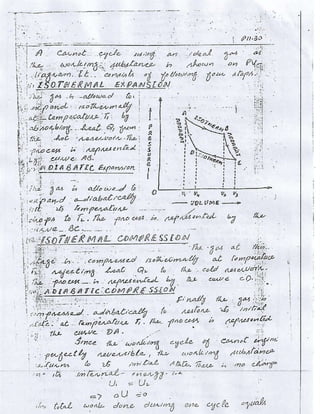 P11-30
A Carnot cycle using an ideal gas as
the working substance is shown on PV-
diagram. It consists of following four steps.
ISOTHERMAL EXPANSION
The gas is allowed to
expand isothermally
at temperature T₁ by
absorbing heat Q₁ from
the hot reservoir. The
process is represented
by curve AB.
ADIABATIC Expansion
The gas is allowed to
expand adiabatically
till its temperature
drops to T₂. The process is represented by the
curve BC.
PRESSURE
A
ISOTHERM
B
D
ISOTHERM
C
VOLUME
ISOTHERMAL COMPRESSION
The gas at this
stage is compressed isothermally at temperature
rejecting heat Q₂ to the cold reservoir.
The process is represented by the curve CD.
ADIABATIC COMPRESSION
Finally the gas is
compressed adiabatically to restore its initial
state at temperature T₁. The process is represented
by the curve DA.
Since the working cycle of Carnot engine
perfectly reversible, the working substance
returns to its initial state. There is no change
in its internal energy i.e
=> ΔU = 0
The total work done during one cycle equals